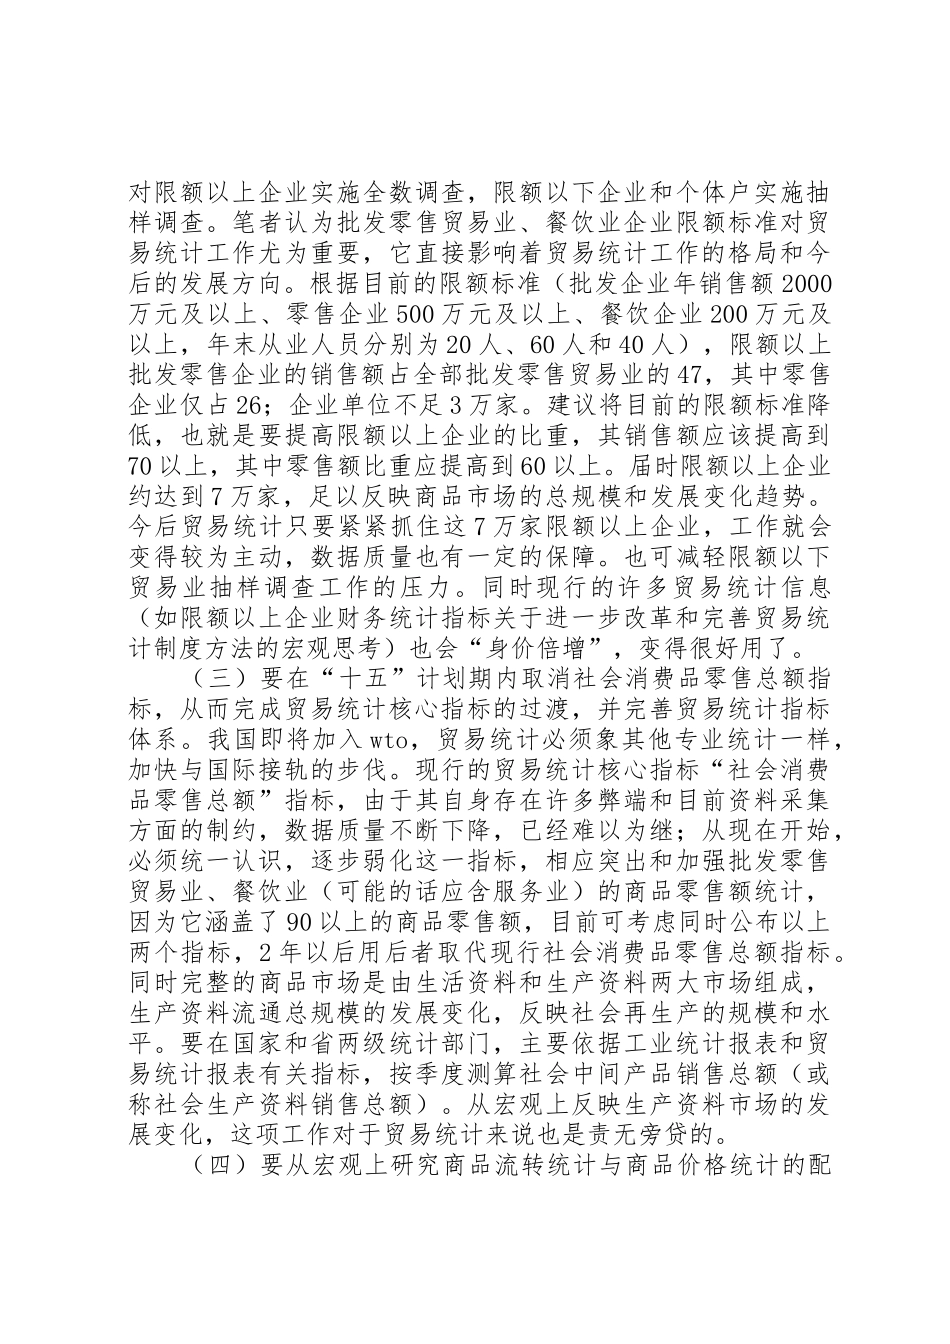 对限额以上企业实施全数调查，限额以下企业和个体户实施抽
样调查。笔者认为批发零售贸易业、餐饮业企业限额标准对贸
易统计工作尤为重要，它直接影响着贸易统计工作的格局和今
后的发展方向。根据目前的限额标准（批发企业年销售额 2000
万元及以上、零售企业 500 万元及以上、餐饮企业 200 万元及
以上，年末从业人员分别为 20 人、60 人和 40 人），限额以上
批发零售企业的销售额占全部批发零售贸易业的 47，其中零售
企业仅占 26；企业单位不足 3 万家。建议将目前的限额标准降
低，也就是要提高限额以上企业的比重，其销售额应该提高到
70 以上，其中零售额比重应提高到 60 以上。届时限额以上企业
约达到 7 万家，足以反映商品市场的总规模和发展变化趋势。
今后贸易统计只要紧紧抓住这 7 万家限额以上企业，工作就会
变得较为主动，数据质量也有一定的保障。也可减轻限额以下
贸易业抽样调查工作的压力。同时现行的许多贸易统计信息
（如限额以上企业财务统计指标关于进一步改革和完善贸易统
计制度方法的宏观思考）也会“身价倍增”，变得很好用了。
（三）要在“十五”计划期内取消社会消费品零售总额指
标，从而完成贸易统计核心指标的过渡，并完善贸易统计指标
体系。我国即将加入 wto，贸易统计必须象其他专业统计一样，
加快与国际接轨的步伐。现行的贸易统计核心指标“社会消费
品零售总额”指标，由于其自身存在许多弊端和目前资料采集
方面的制约，数据质量不断下降，已经难以为继；从现在开始，
必须统一认识，逐步弱化这一指标，相应突出和加强批发零售
贸易业、餐饮业（可能的话应含服务业）的商品零售额统计，
因为它涵盖了 90 以上的商品零售额，目前可考虑同时公布以上
两个指标，2 年以后用后者取代现行社会消费品零售总额指标。
同时完整的商品市场是由生活资料和生产资料两大市场组成，
生产资料流通总规模的发展变化，反映社会再生产的规模和水
平。要在国家和省两级统计部门，主要依据工业统计报表和贸
易统计报表有关指标，按季度测算社会中间产品销售总额（或
称社会生产资料销售总额）。从宏观上反映生产资料市场的发
展变化，这项工作对于贸易统计来说也是责无旁贷的。
（四）要从宏观上研究商品流转统计与商品价格统计的配